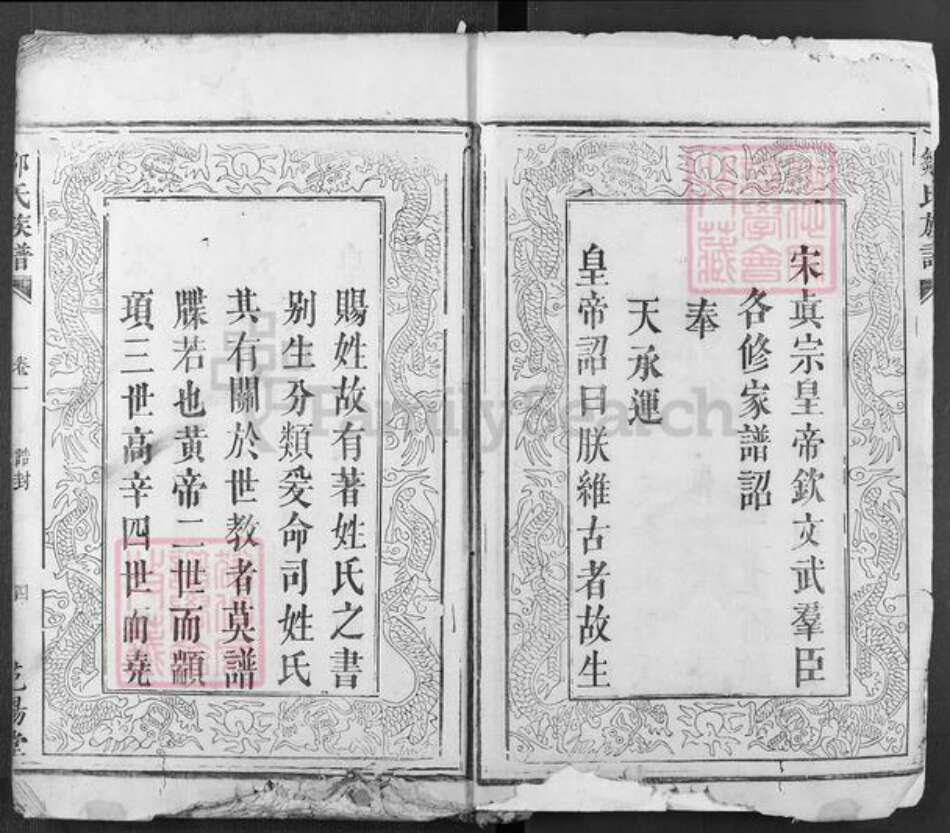 宋眞宗皇帝欽文武羣臣
各修家譜詔
奉
天承運
皇帝詔曰朕維古者故生
賜姓故有著姓氏之書
别生分類爰命司姓氏
其有關於世教者莫譜
牒若也黄帝二世而顓
項三世高辛四世而堯
氏族譜
卷一
誥封
四
FamilySearch